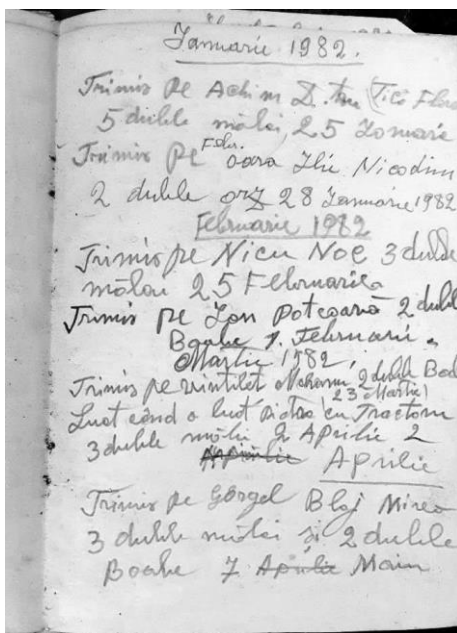 Ianuarie 1982.
Trimis pe Achim D.
5 duble mălai, 25 Ianuarie
Trimis pe Ilie Nicodim
2 duble orz 28 Ianuarie 1982
Februarie 1982
Trimis pe Nicu Noe 3 duble
mălai 25 Februarie
Trimis pe Ion Potcoavă 2 duble
Boabe 1. Februarie
Martie 1982,
Trimis pe 2 duble
23 Martie
Luat când a luat cu Tractoru
3 duble mălai 2 Aprilie 2
Aprilie Aprilie
Trimis pe Görgel Blaj Mirea
3 duble mălai și 2 duble
Boabe 7 Aprilie Main